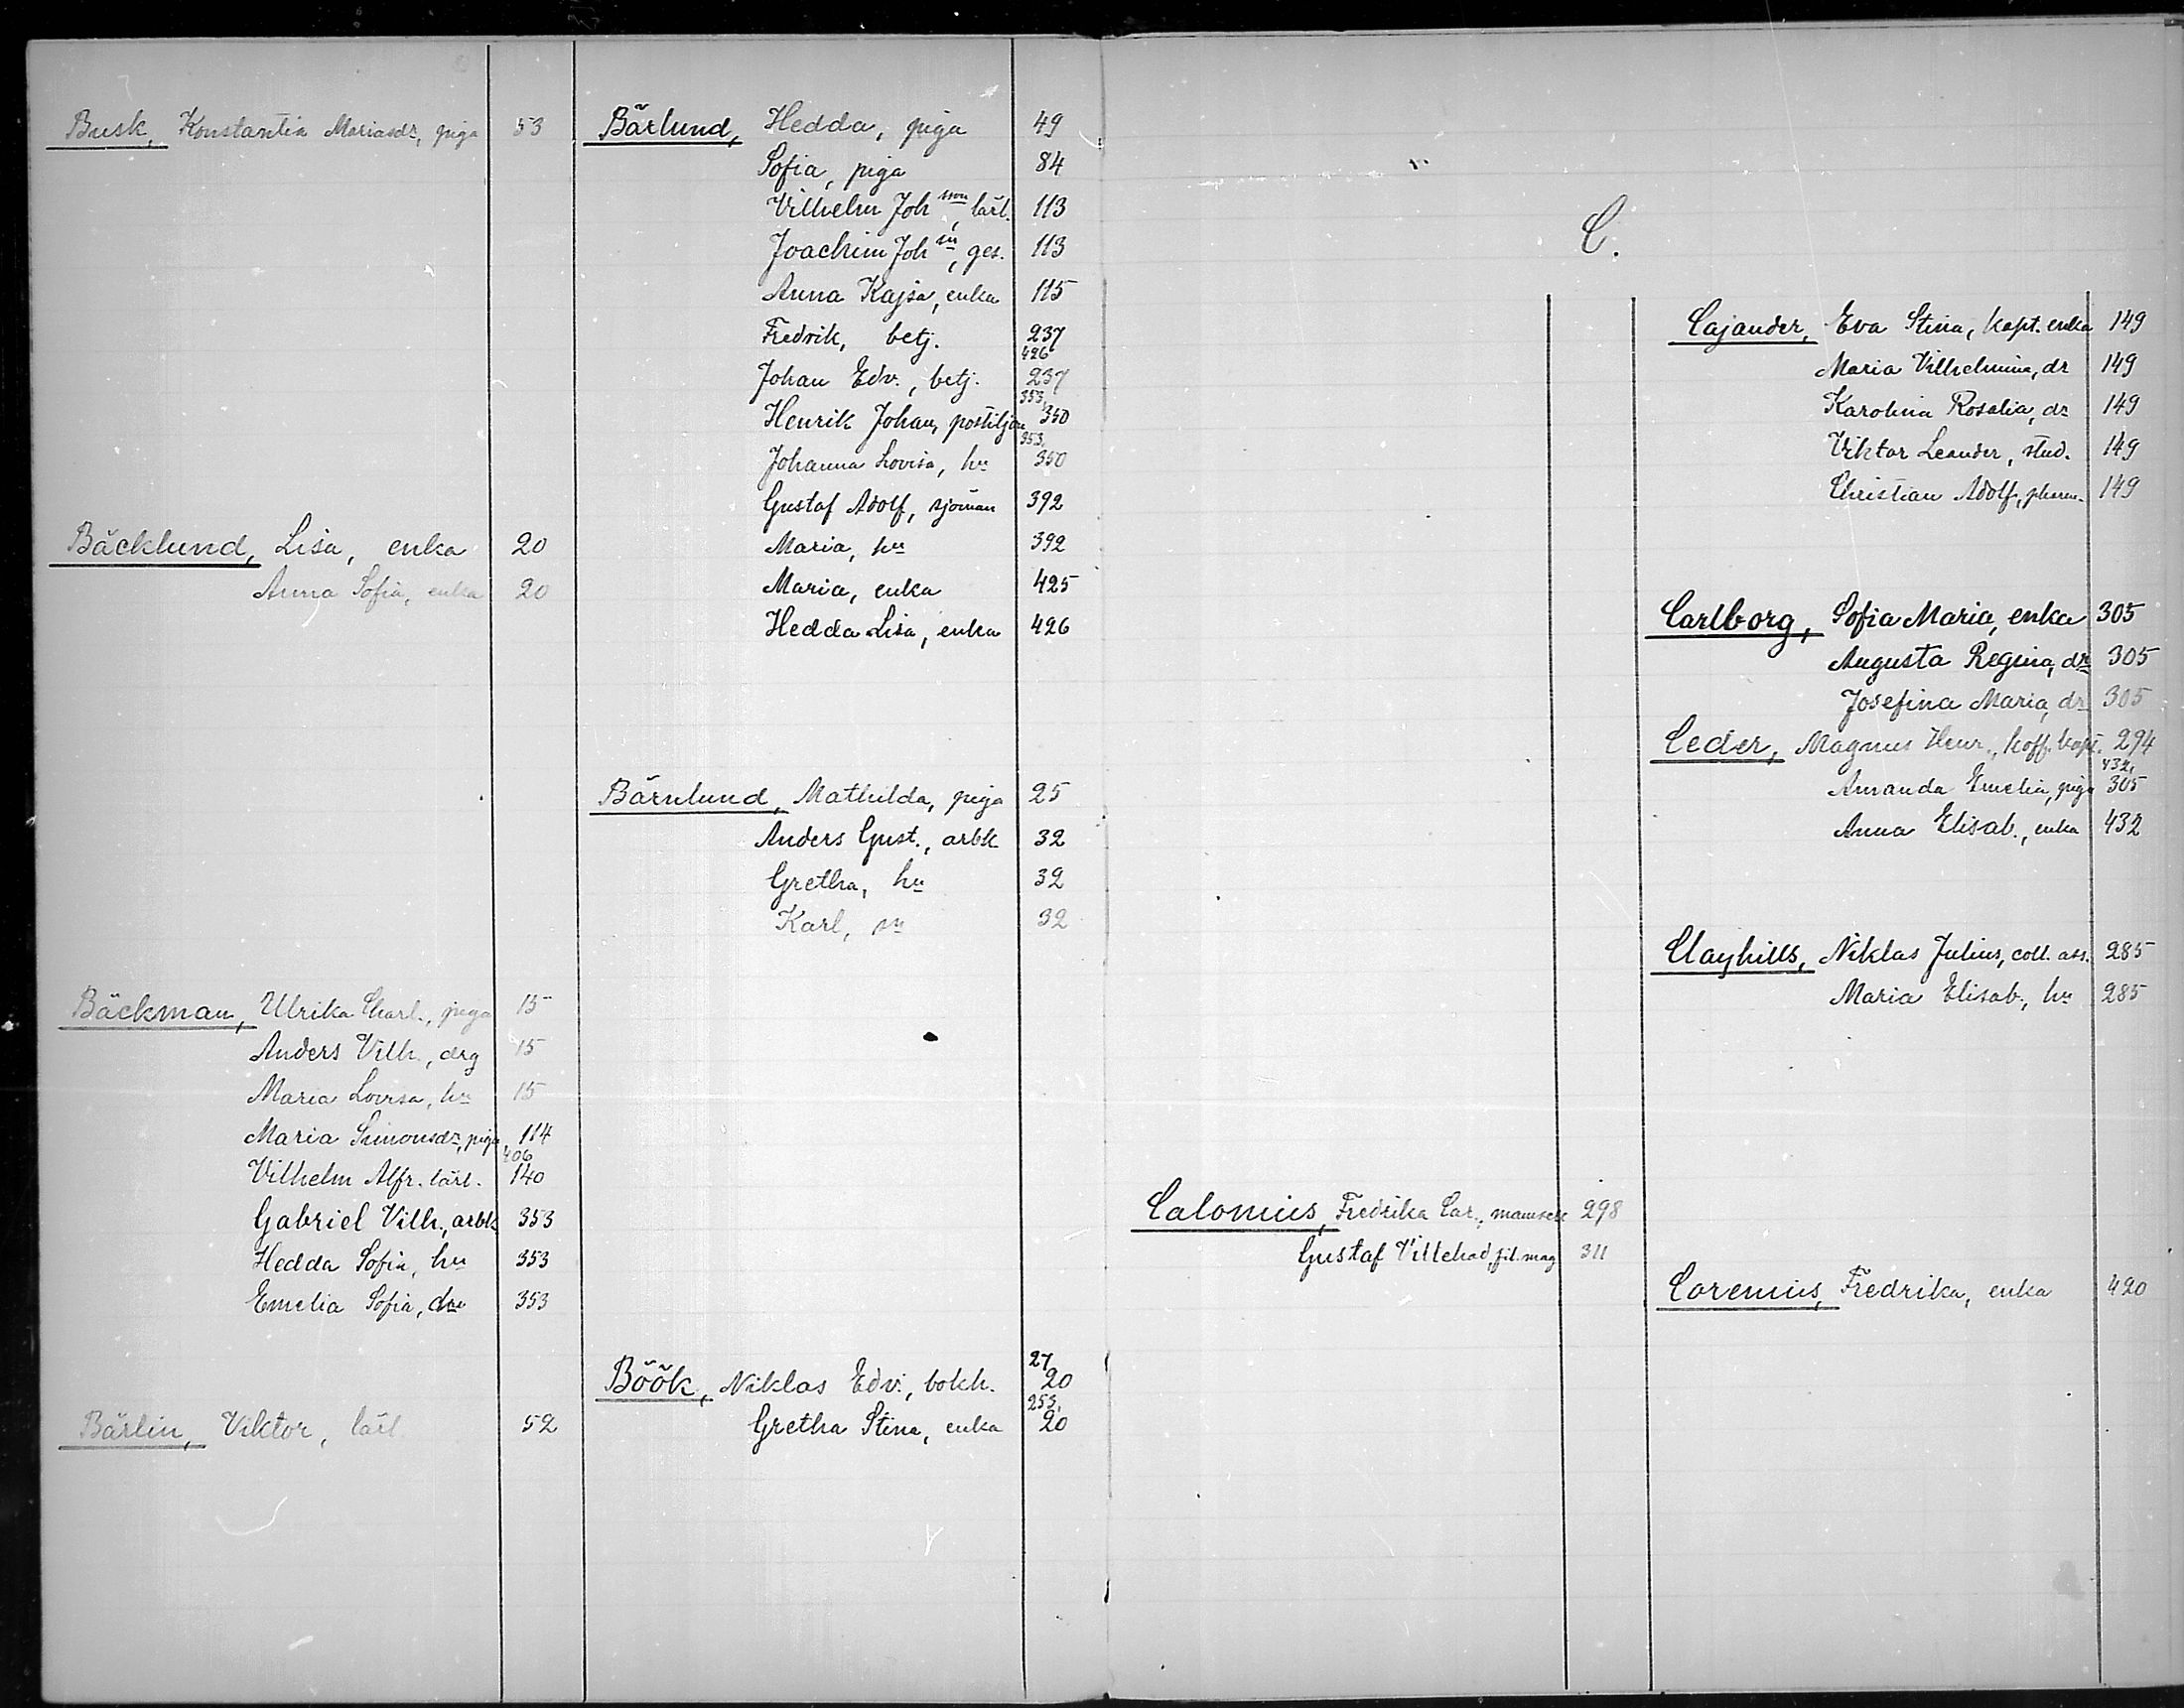 Busk, Konstantia Mariasdr, piga 53
Bäcklund, Lisa, enka 20
Anna Sofia, enka 20
Bäckman, Ulrika Charl., piga 15
Anders Vilh., drg 15
Maria Lovisa, hu 15
Maria Simonsdr, piga 114
406
Vilhelm Alfr. lärl. 140
Gabriel Vilh., arbk 353
Hedda Sofia, hu 353
Emelia Sofia, dr 353
Bärlin, Viktor, lärl. 52
Bärlund, Hedda, piga 49
Sofia, piga 84
Vilhelm Joh son, lärl. 113
Joachim Joh sn, ges. 113
Anna Kajsa, enka 115
Fredrik, betj. 237
426
Johan Edv., betj. 237
353,
Henrik Johan, postiljon 350
353,
Johanna Lovisa, hu 350
Gustaf Adolf, sjöman 392
Maria, hu 392
Maria, enka 425
Hedda Lisa, enka 426
Bärnlund, Mathilda, piga 25
Anders Gust., arbk 32
Gretha, hu 32
Karl, sn 32
27
Böök, Niklas Edv., bokh. 20
253,
Gretha Stina, enka 20
C.
Calonius, Fredrika Car., mamsell 298
Gustaf Villehad, fil. mag 311
Cajander, Eva Stina, kapt. enka 149
Maria Vilhelmina, dr 149
Karolina Rosalia, dr 149
Viktor Leander, stud. 149
Christian Adolf, pharm. 149
Carlborg, Sofia Maria, enka 305
Augusta Regina, dr 305
Josefina Maria, dr 305
Ceder, Magnus Henr., koff. kapt. 294
432,
Amanda Emelia, piga 305
Anna Elisab., enka 432
Clayhills, Niklas Julius, coll. ass. 285
Maria Elisab., hu 285
Corenius, Fredrika, enka 420